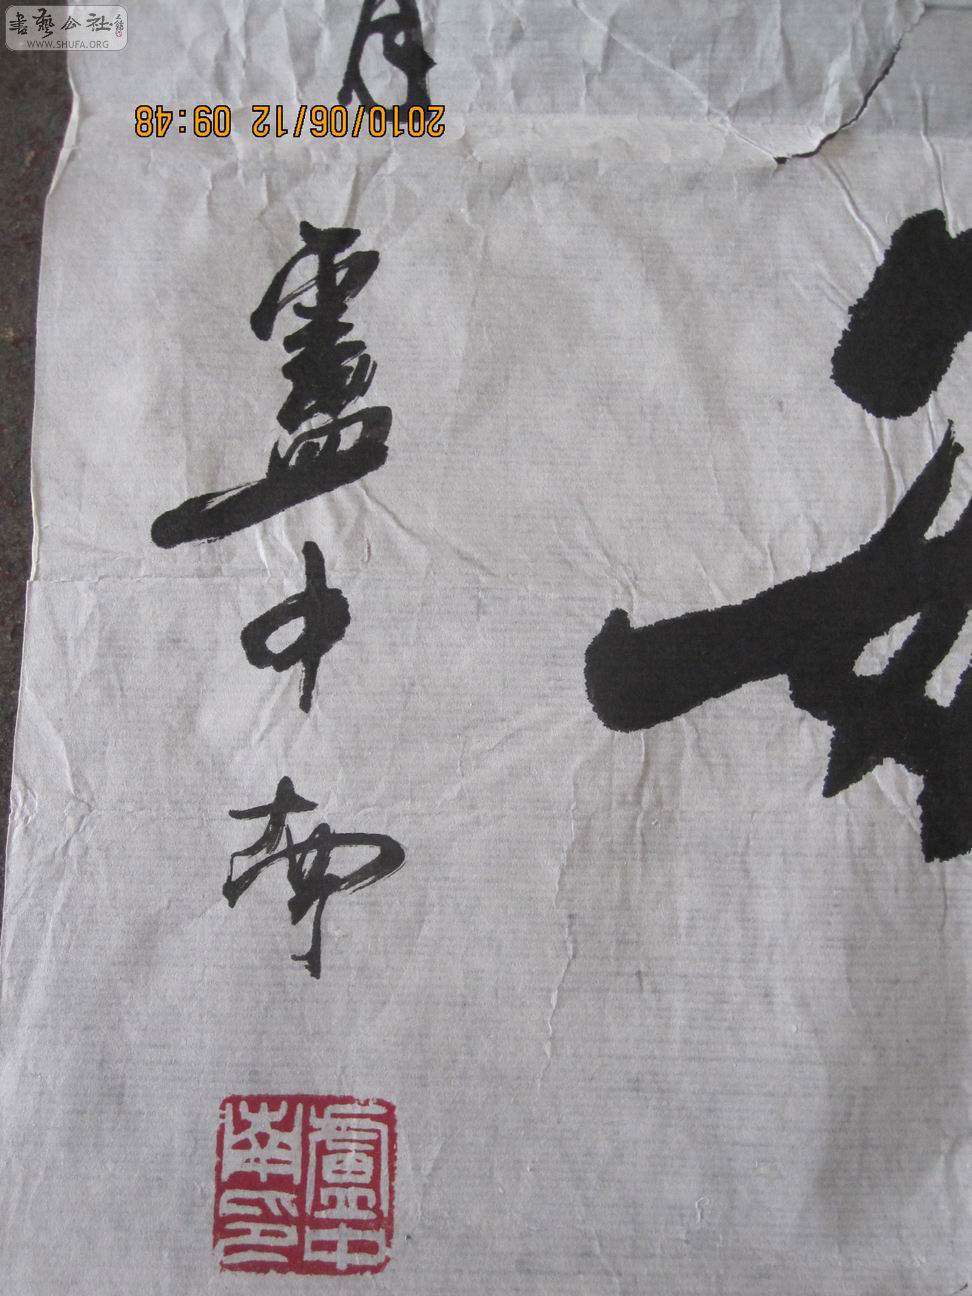 書藝公社
WWW.SHUFA.ORG
月
2010/06/12 09:48
盧中南
盧中南印